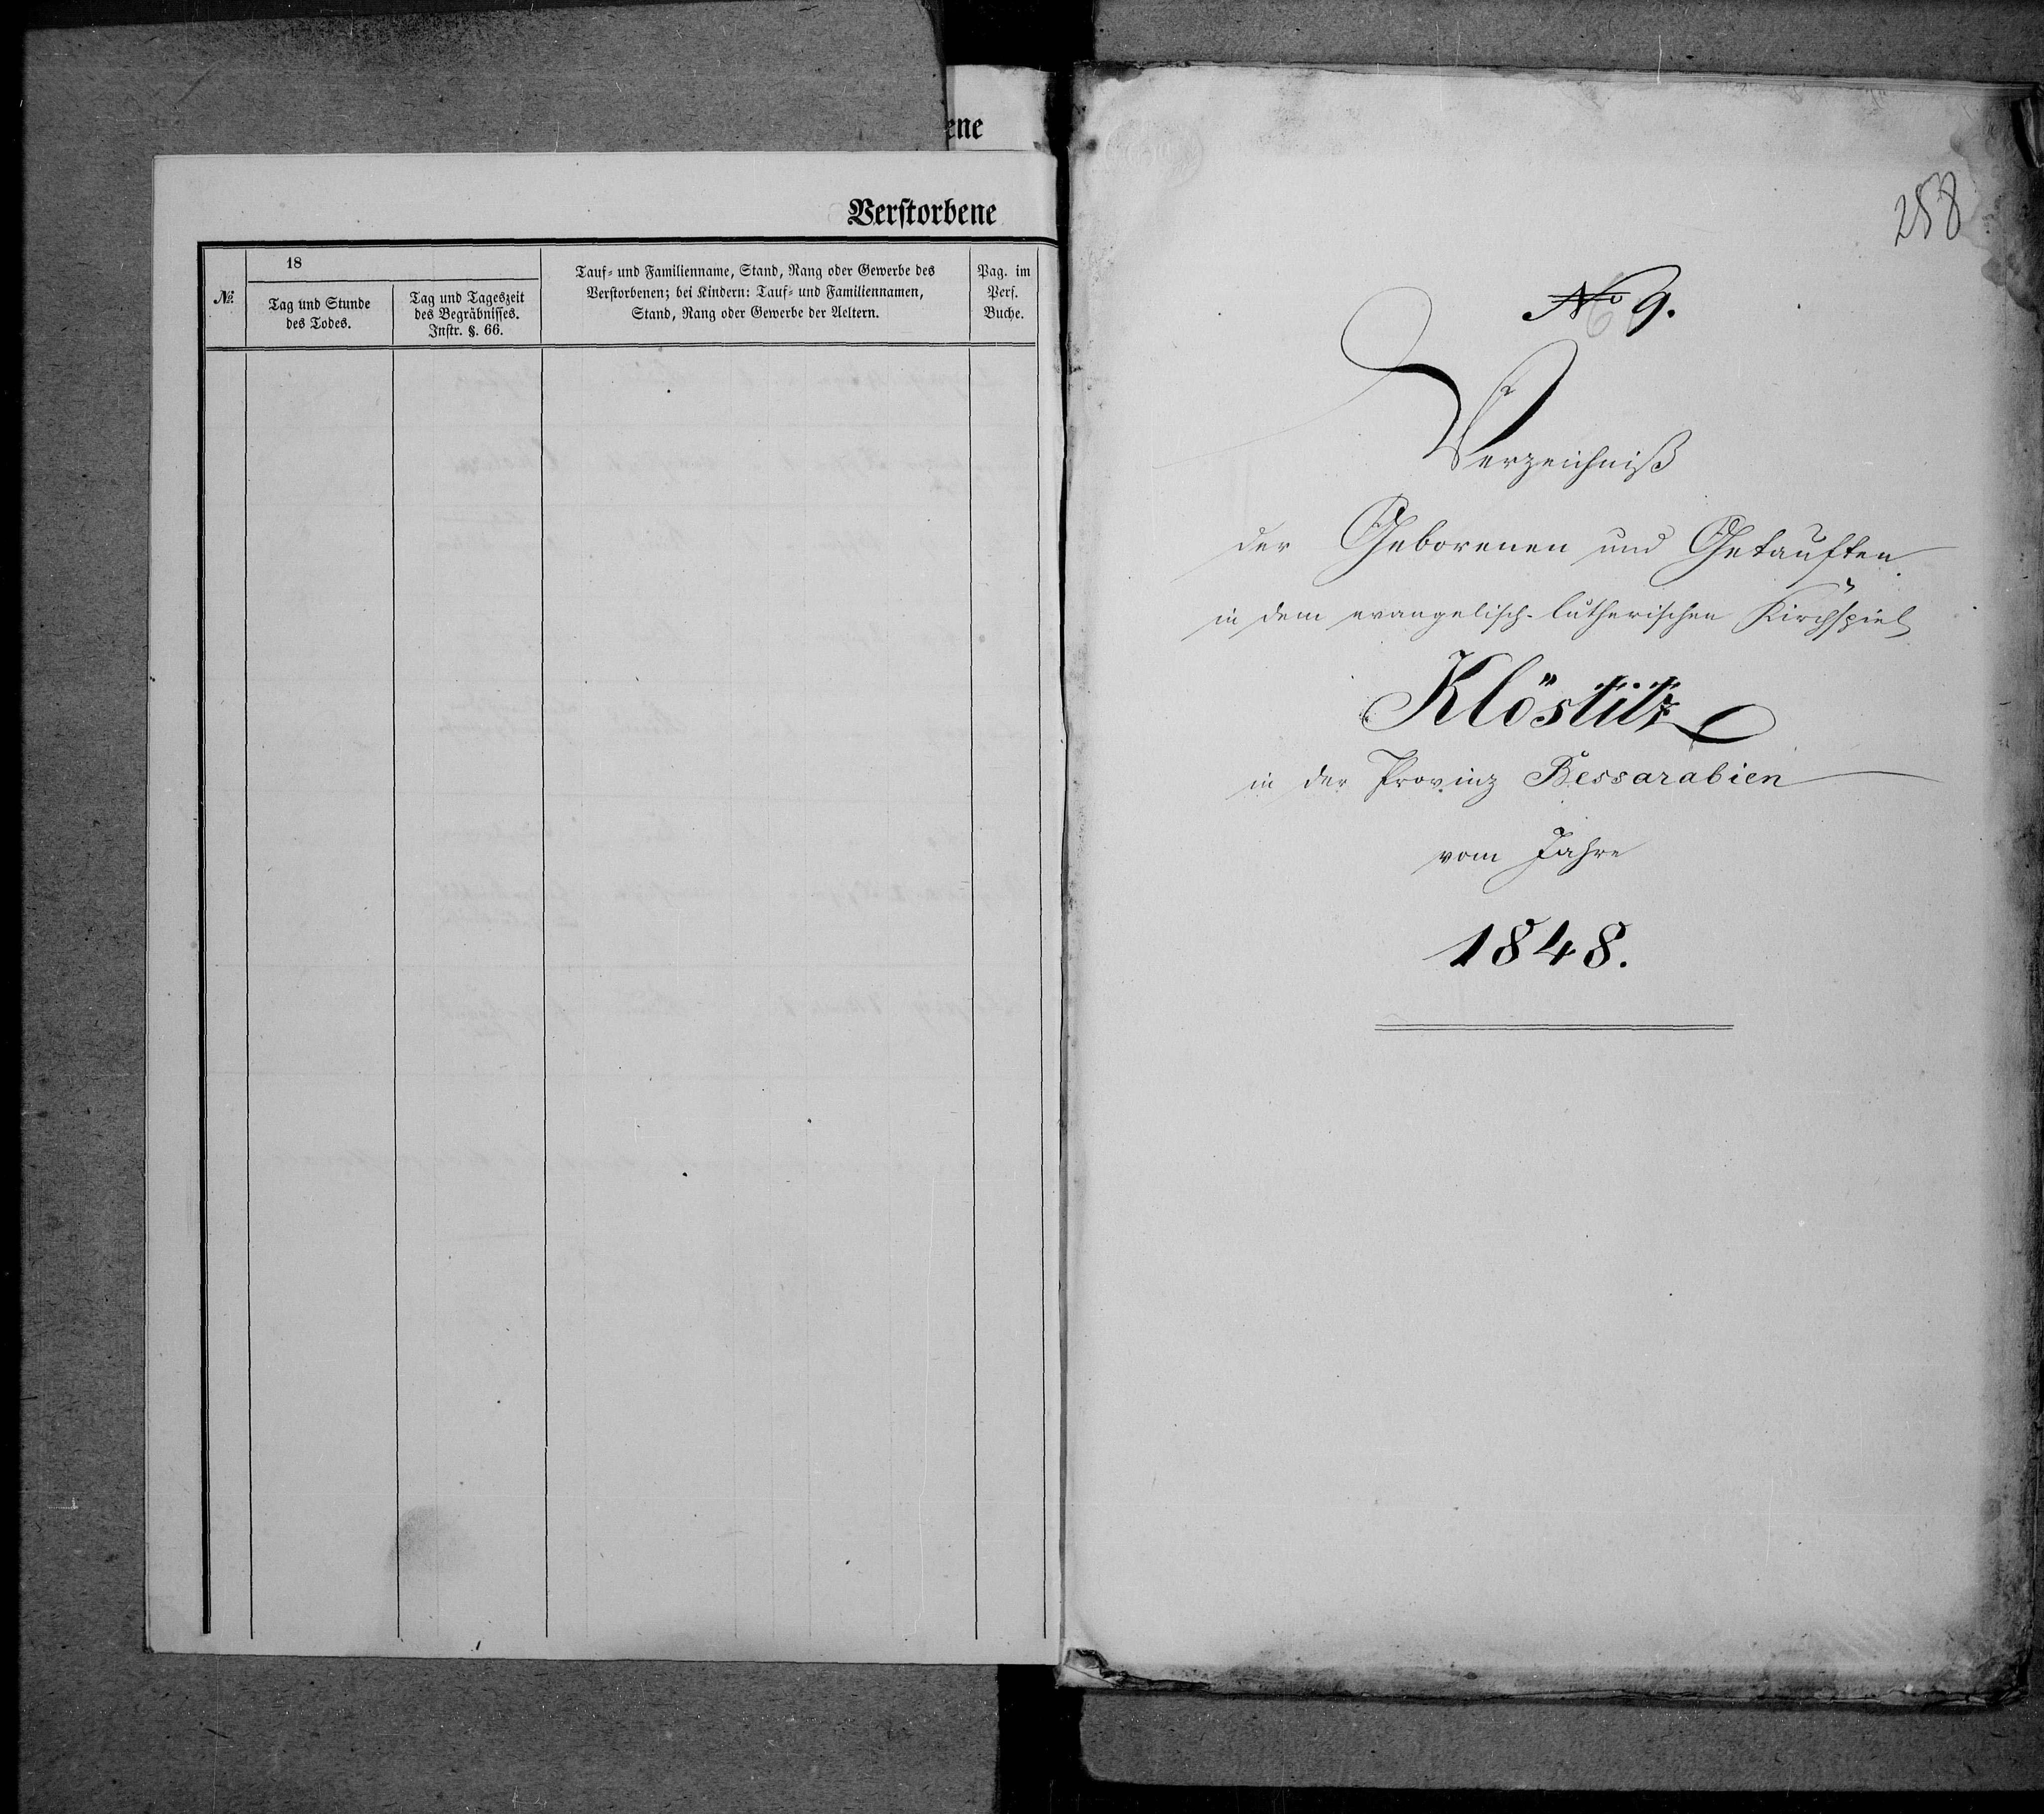 ene
Verstorbene
№
18
Tag und Stunde
des Todes.
Tag und Tageszeit
des Begräbnisses.
Instr. §. 66.
Tauf- und Familienname, Stand, Rang oder Gewerbe des
Verstorbenen; bei Kindern: Tauf- und Familiennamen,
Stand, Rang oder Gewerbe der Aeltern.
Pag. im
Pers.
Buche.
258
No 9.
Verzeichniß
der Geborenen und Getauften
in dem evangelisch-lutherischen Kirchspiel
Klöstitz
in der Provinz Bessarabien
vom Jahre
1848.